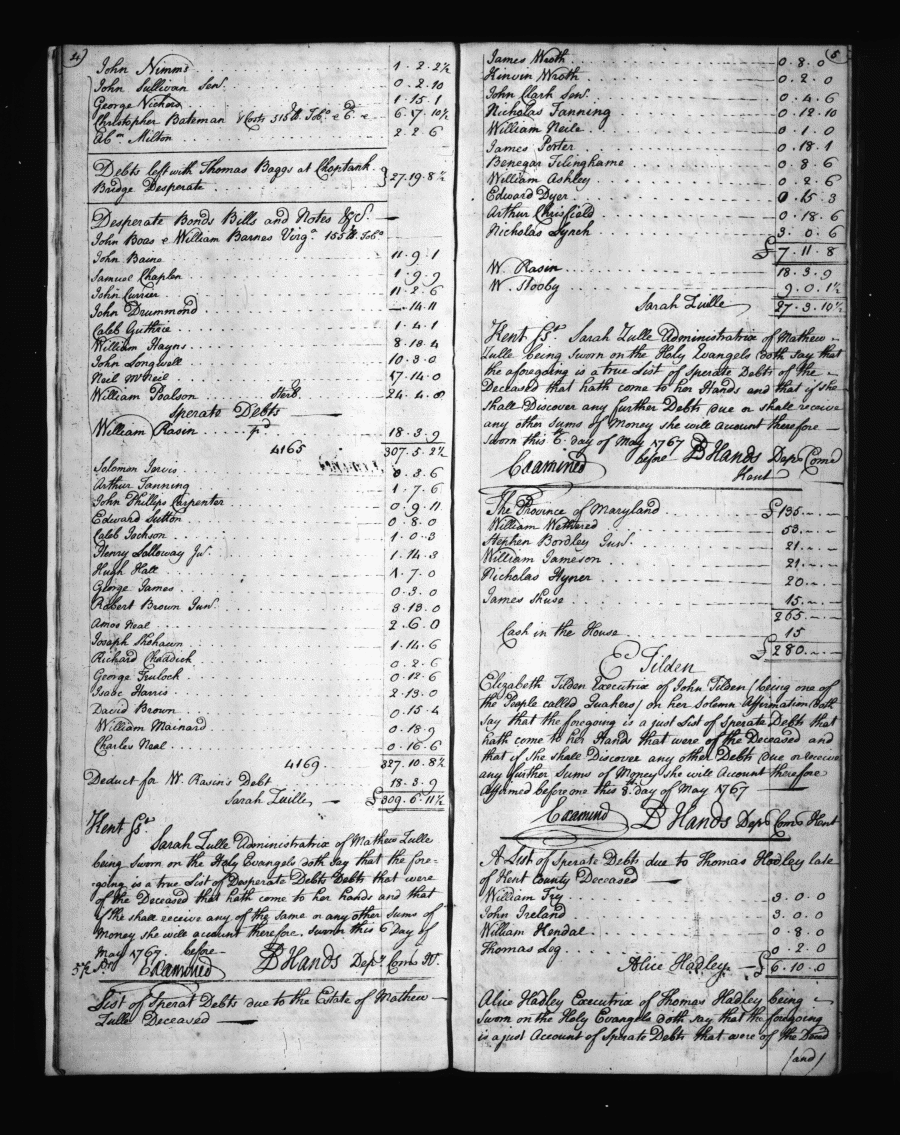 4)
John Nimms 1.2.2½
John Sullivan Senr. 0.2.10
George Vickers 1.15.1
Christopher Bateman & Costs 315 lb. Tobo. 6.17.10½
Abm. Milton 2.2.6
Debts left with Thomas Baggs at Choptank
Bridge Desperate } 27.19.8½
Desperate Bonds Bills and Notes &c.
John Boas & William Barnes Virga. 155 lb. Tobo
John Bane 11.9.1
Samuel Chaplen 1.9.9
John Currier 11.2.6
John Drummond —.14.11
Caleb Guthrie 1.4.1
William Hayns 8.18.4
John Longwell 10.3.0
Neil McNeil 17.14.0
William Poalson Sterg. 24.4.8
Sperate Debts
William Rasin pd 18.3.9
4165 307.5.2½
Solomon Jarvis 0.3.6
Arthur Fanning 1.7.6
John Phillips Carpenter 0.9.11
Edward Sutton 0.8.0
Caleb Jackson 1.0.3
Henry Solloway Jur. 1.14.3
Hugh Hall 1.7.0
George James 0.3.0
Robert Brown Junr. 3.13.0
Amos Neal 2.6.0
Joseph Shahawn 1.14.6
Richard Chaddick 0.2.6
George Truloch 0.12.6
Isaac Harris 2.13.0
David Brown 0.15.4
William Mainard 0.18.9
Charles Neal 0.16.6
4169 327.10.8½
Deduct for W. Rasin's Debt 18.3.9
Sarah Zuille £309.6.11½
Kent Sst.
Sarah Zulle Administratrix of Mathew Zulle
being Sworn on the Holy Evangels doth say that the fore=
=going is a true List of Desperate Debts Debts that were
of the Deceased that hath come to her hands and that
if She shall receive any of the Same or any other Sums of
Money she will account therefore. Sworn this 6 Day of
May 1767 before
Examined B Hands Depy. Comy
List of Sperat Debts due to the Estate of Mathew
Zulle Deceased
(5
James Wroth 0.8.0
Kinvin Wroth 0.2.0
John Clark Senr. 0.4.6
Nicholas Fanning 0.12.10
William Neile 0.1.0
James Porter 0.18.1
Benegar Filinghame 0.8.6
William Ashley 0.2.6
Edward Dyer 0.15.3
Arthur Chrisfield 0.18.6
Nicholas Lynch 3.0.6
£7.11.8
W. Rasin 18.3.9
W. Slooby 9.0.1½
Sarah Zuille 27.3.10½
Kent Sst. Sarah Zulle Administratrix of Mathew
Zulle being Sworn on the Holy Evangels doth Say that
the aforegoing is a true List of Sperate Debts of the
Deceased that hath come to her Hands and that if She
Shall Discover any further Debts due or shall receive
any other Sums of Money she will account therefore
Sworn this 6 day of May 1767
Examined before B Hands Depy Comy
Kent
The Province of Maryland £135.—.—
William Wethered 53.—.—
Stephen Bordley Junr. 21.—.—
William Jameson 21.—.—
Nicholas Hyner 20.—.—
James Shuse 15.—.—
265.—.—
Cash in the House 15
£280.—.—
E Tilden
Elizabeth Tilden Executrix of John Tilden (being one of
the People called Quakers) on her Solemn Affirmation Doth
Say that the foregoing is a just List of Sperate Debts that
hath come to her Hands that were of the Deceased and
that if she Shall Discover any other Debts due or receive
any further Sums of Money she will Account therefore
Affirmed before me this 8 day of May 1767
Examined B Hands Depy Comy Kent
A List of Sperate Debts due to Thomas Hadley late
of Kent County Deceased
William Fry 3.0.0
John Ireland 3.0.0
William Hendal 0.8.0
Thomas Leg 0.2.0
Alice Hadley £6.10.0
Alice Hadley Executrix of Thomas Hadley being
Sworn on the Holy Evangels doth say that the foregoing
is a just Account of Sperate Debts that were of the Deced
(and)